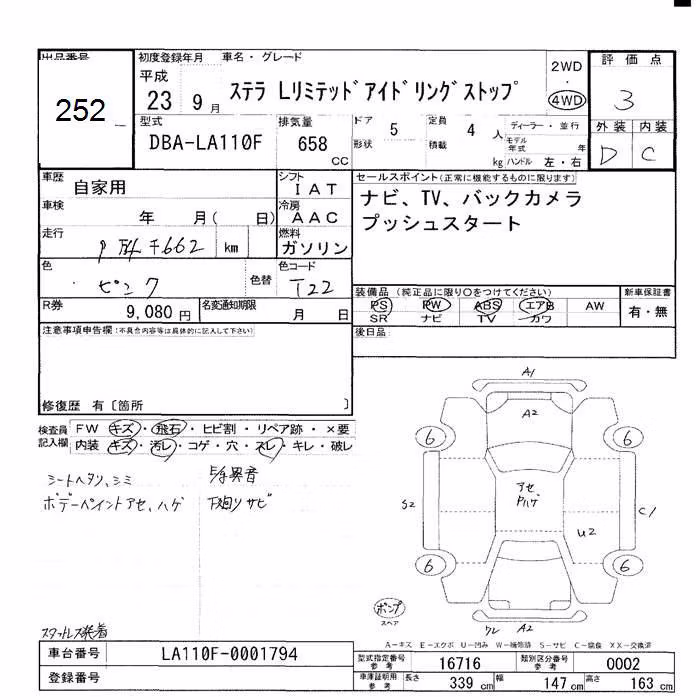 出品番号
252
初度登録年月
車名・グレード
平成
23 9 月
ステラ Lリミテッド アイドリングストップ
2WD
・
4WD
評価点
3
型式
DBA-LA110F
排気量
658
CC
ドア
5
形状
定員
4 人
積載
kg
ディーラー・並行
モデル
年式
年
ハンドル 左・右
外装 内装
D C
車歴
自家用
シフト
IAT
車検
年 月( 日)
冷房
AAC
走行
km
燃料
ガソリン
セールスポイント(正常に機能するものに限ります)
ナビ、TV、バックカメラ
プッシュスタート
色
ピンク
色替
色コード
T22
R券
9,080 円
名変通知期限
月 日
装備品 (純正品に限り○をつけてください)
PS PW ABS エアB AW
SR ナビ TV カワ
新車保証書
有・無
注意事項申告欄(不具合内容等は具体的に記入して下さい)
後日品
修復歴 有〔箇所 〕
検査員
記入欄
FW キズ・飛石・ヒビ割・リペア跡・×要
内装 キズ・汚レ・コゲ・穴・スレ・キレ・破レ
シートヘタリ、シミ
ボデーペイントアセ、ハゲ
下廻リサビ
スタッドレス装着
A1
A2
6
6
アセ
Pハゲ
S2
C1
U2
6
6
ポンプ
スペア
ワレ A2
A-キズ E-エクボ U-凹み W-補修跡 S-サビ C-腐食 XX-交換済
車台番号
LA110F-0001794
登録番号
型式指定番号
参考
16716
類別区分番号
参考
0002
車庫証明用
参考
長さ
339 cm
幅
147 cm
高さ
163 cm